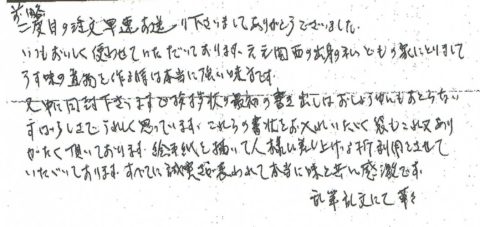 前略
二度目の注文早速お送り下さいましてありがとうございました。
いつもおいしく使わせていただいております。元元関西の出身の私どもの家にとりまして
うす味の煮物を作る時は本当に強い味方です。
文中に同封下さいます御挨拶状の最初の書き出しはおしょうゆにもおとらない
すばらしさでうれしく思っています。これらの書状をお入れいただく袋もこれ又あり
がたく頂いております。絵手紙を描いて人様に差し上げる折利用させて
いただいております。すべてに誠実さ表われて本当に味と共に感激です。
乱筆乱文にて 草々